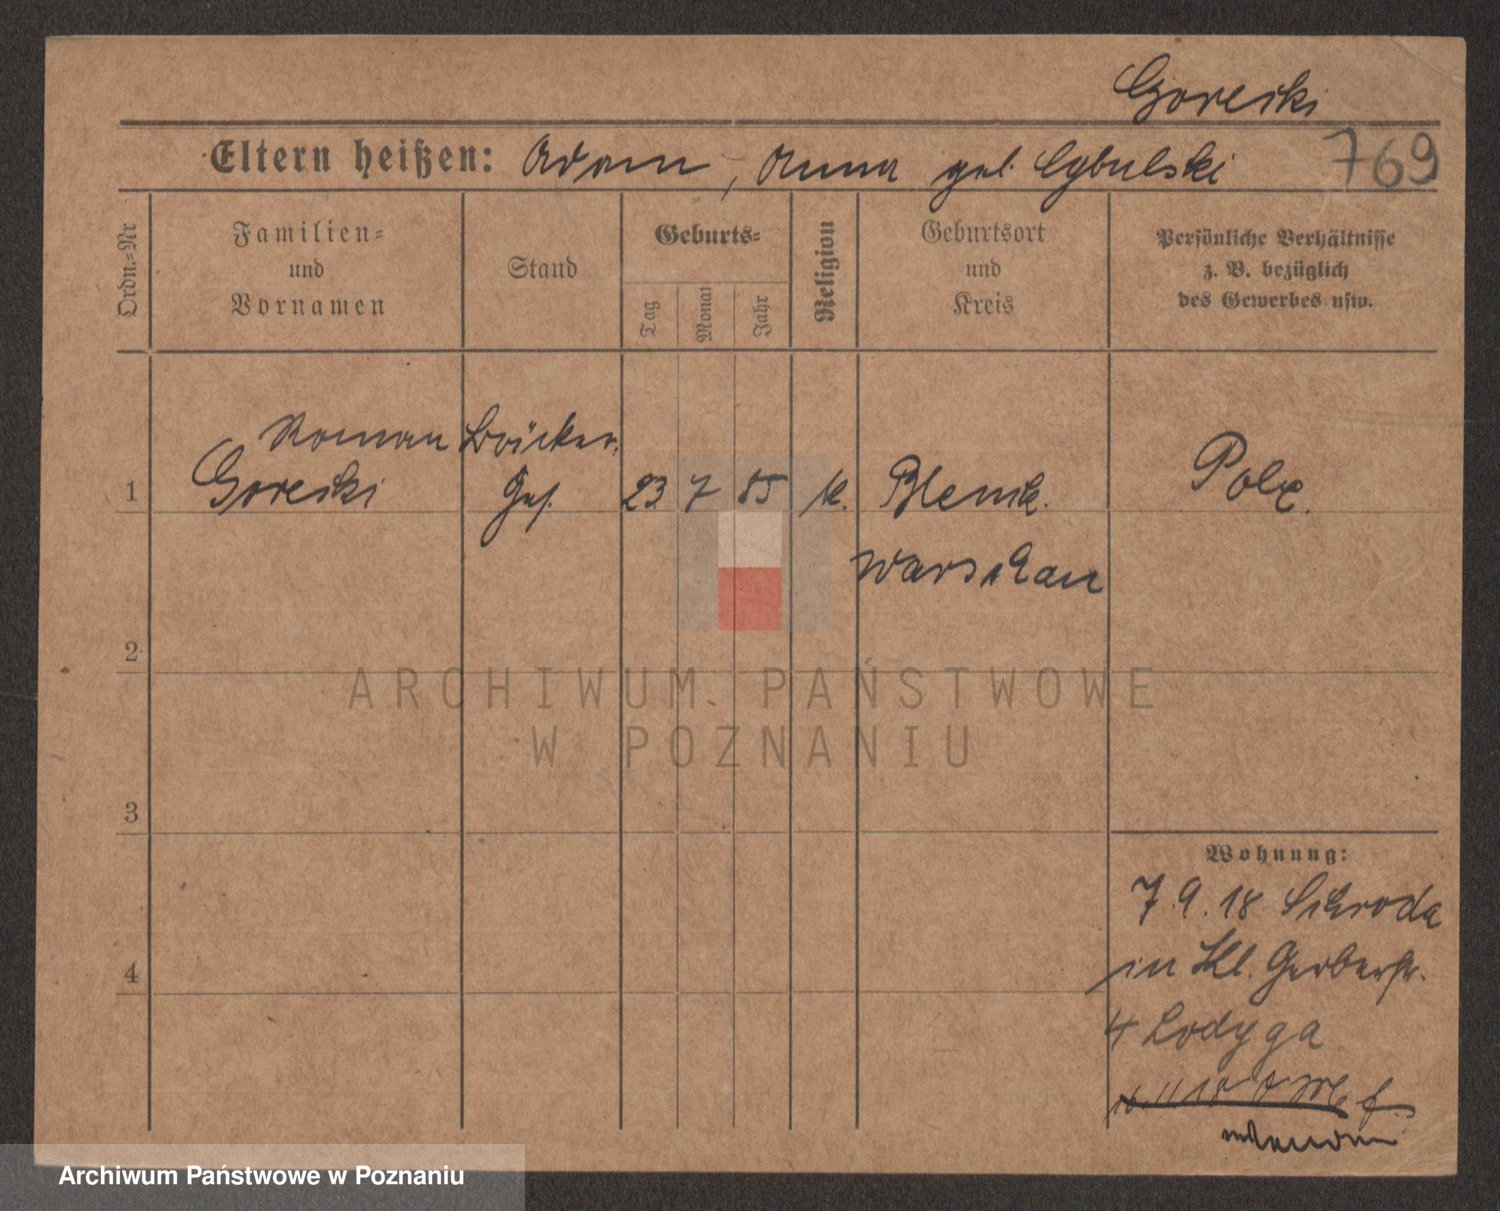 Gorecki
Eltern heißen: Adam, Anna geb. Cybulski 769
Ordn.-Nr
Familien-
und
Vornamen
Stand
Geburts-
Tag
Monat
Jahr
Religion
Geburtsort
und
Kreis
Persönliche Verhältnisse
z. B. bezüglich
des Gewerbes usw.
Roman Bäcker
1 Gorecki Ges. 23 7 85 k. Pole.
Warschau
2
ARCHIWUM PAŃSTWOWE
W POZNANIU
3
Wohnung:
7.9.18 Schroda
in Kl. Gerberstr.
4
4 Lodyga
Archiwum Państwowe w Poznaniu